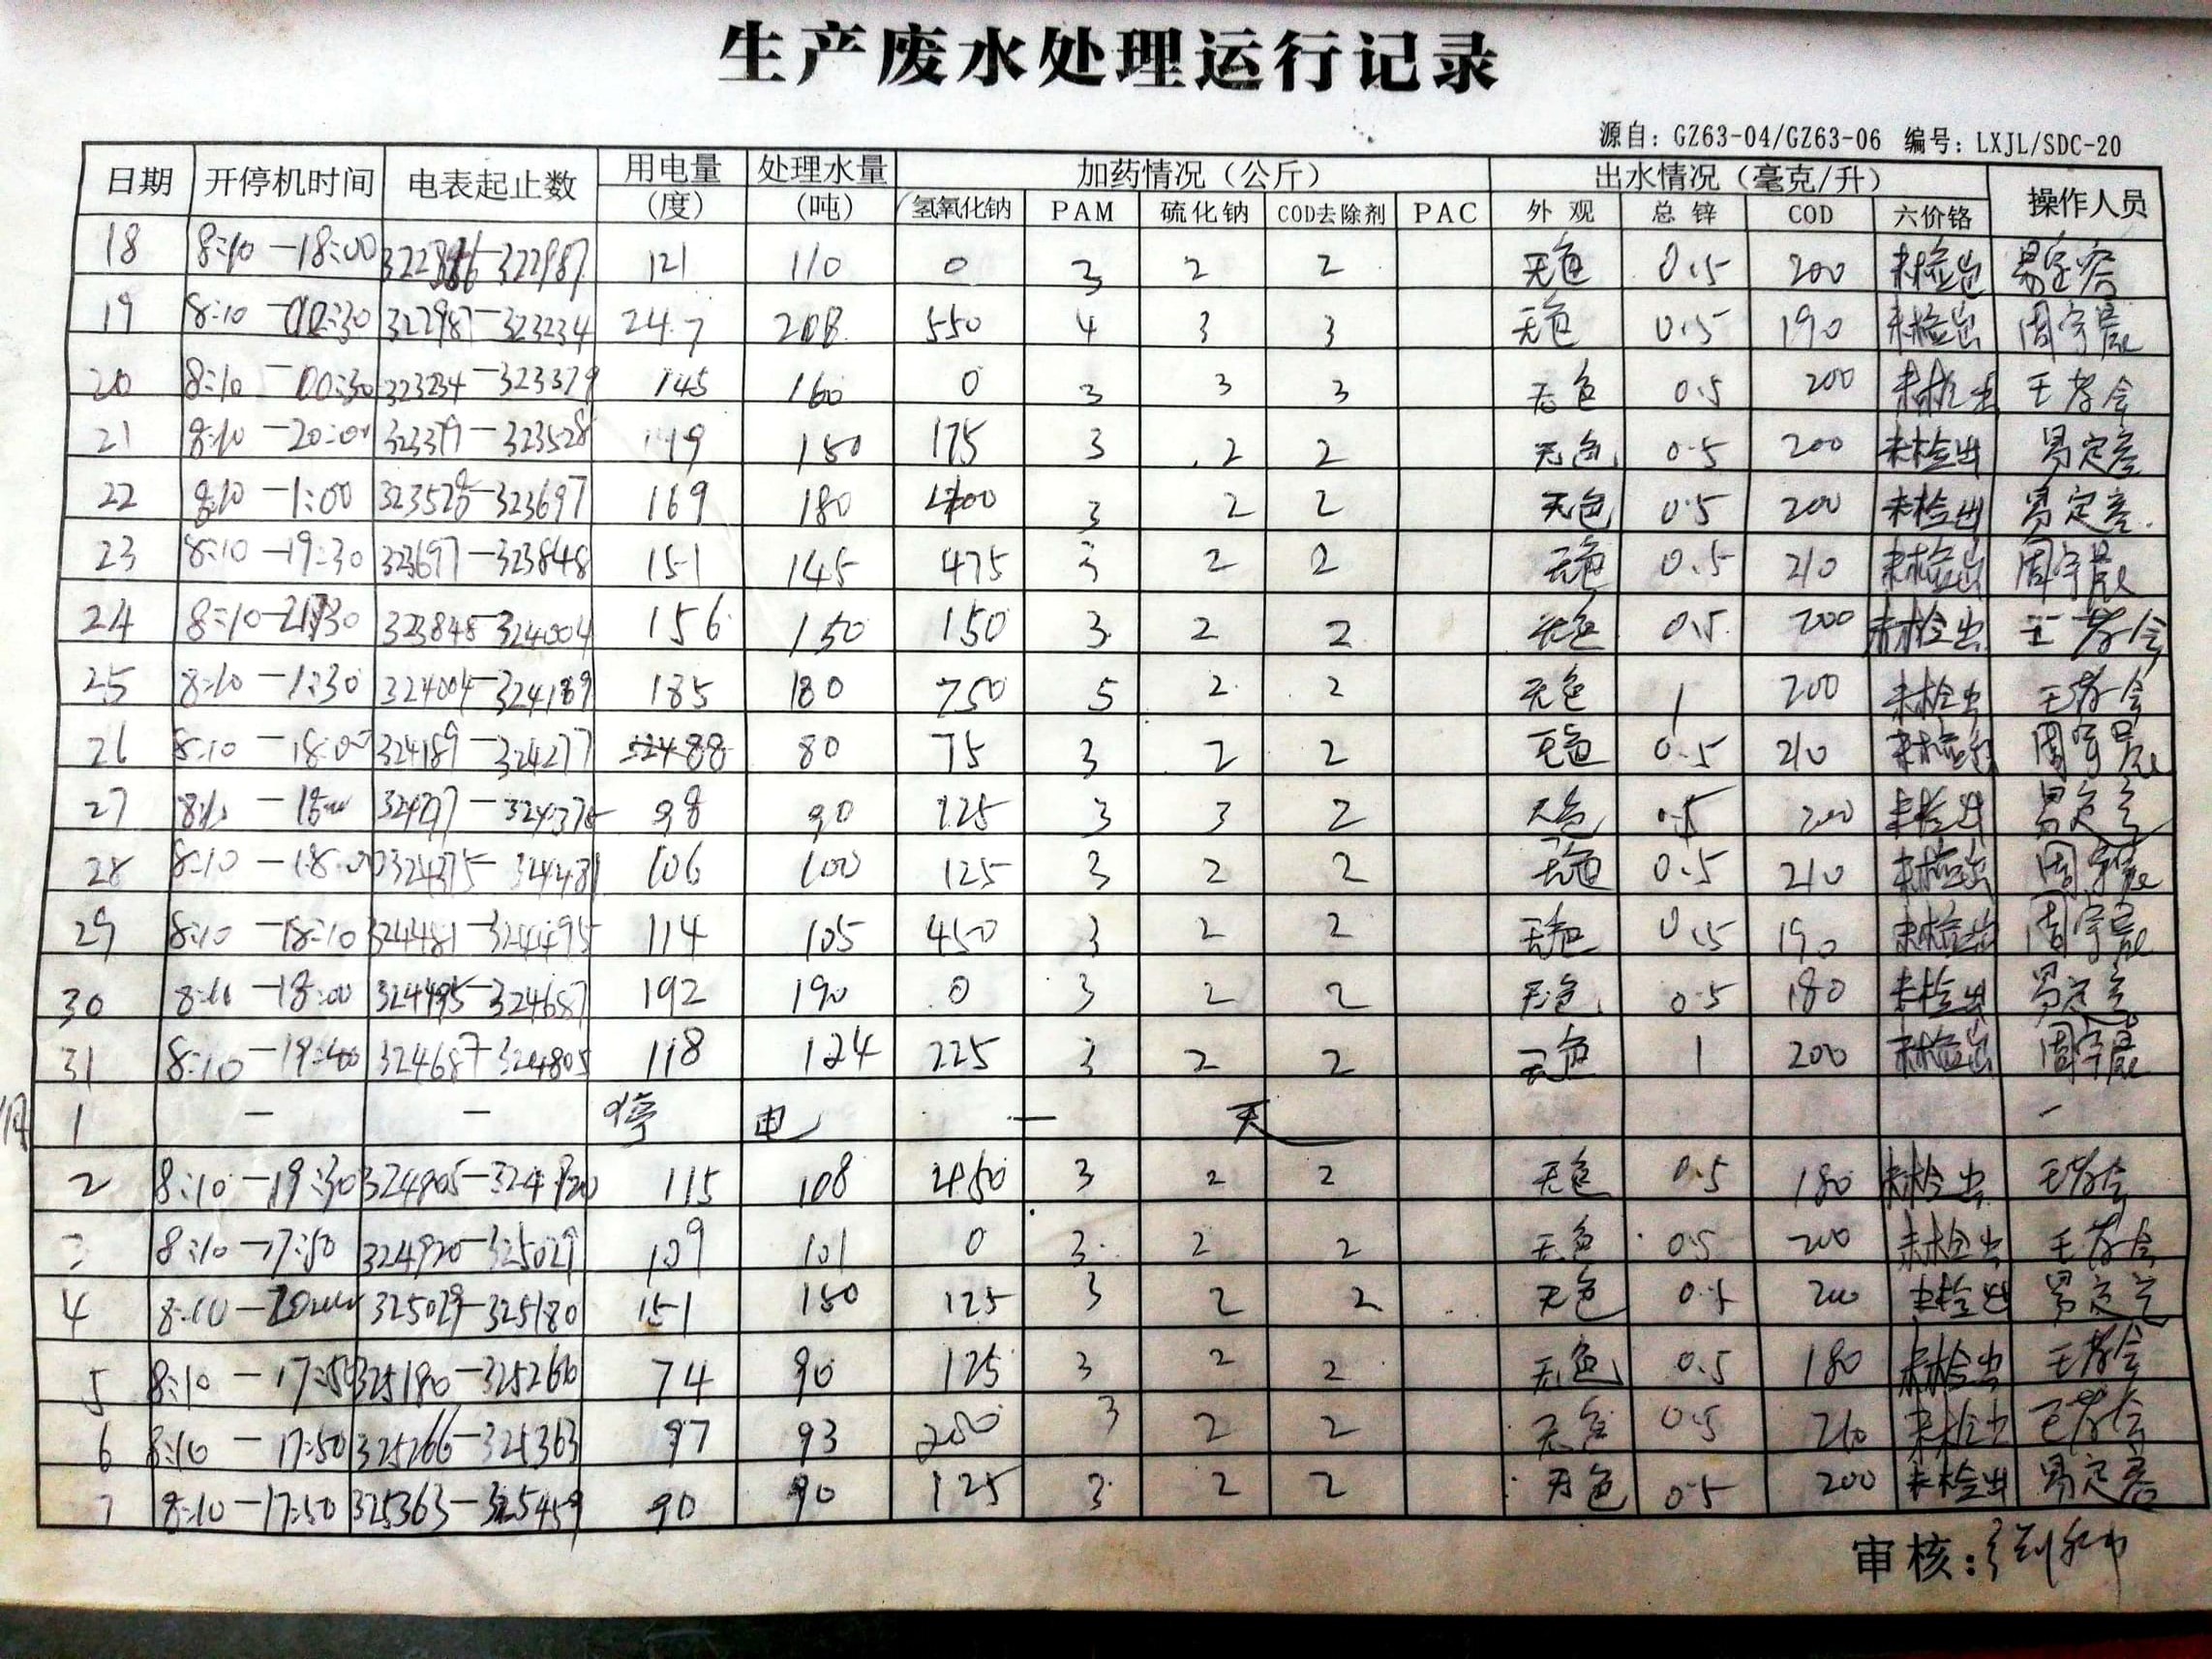 生产废水处理运行记录
源自：GZ63-04/GZ63-06 编号：LXJL/SDC-20
日期 开停机时间 电表起止数 用电量（度） 处理水量（吨） 加药情况（公斤） 出水情况（毫克/升） 操作人员
氢氧化钠 PAM 硫化钠 COD去除剂 PAC 外观 总锌 COD 六价铬
18 8:10 -18:00 -322987 121 110 0 3 2 2 无色 0.5 200 未检出
19 8:10 322987-323234 247 208 550 4 3 3 无色 0.5 190 未检出 周宇晨
20 8:10 -00:30 323234-323379 145 160 0 3 3 3 无色 0.5 200 未检出 王孝会
21 8:10 -20:00 323379-323528 150 175 3 2 2 无色 0.5 200 未检出 易定容
22 8:10 -1:00 323528-323697 169 180 3 2 2 无色 0.5 200 未检出 易定容
23 8:10 -19:30 323697-323848 151 145 475 3 2 2 无色 0.5 210 未检出 周宇晨
24 8:10- 323848-324004 156 150 150 3 2 2 无色 0.5 200 未检出 王孝会
25 8:10 -1:30 324004-324189 185 180 750 5 2 2 无色 1 200 未检出 王孝会
26 8:10 -18:00 324189-324277 88 80 75 3 2 2 无色 0.5 210 未检出 周宇晨
27 98 90 125 3 3 2 无色 0.5 200 未检出 易定容
28 8:10 -18:00 324375-324481 106 100 125 3 2 2 无色 0.5 210 未检出 周宇晨
29 8:10 -18:10 324481-324495 114 105 450 3 2 2 无色 0.5 190 未检出 周宇晨
30 8:10 -18:00 324495-324687 192 190 0 3 2 2 无色 0.5 180 未检出 易定容
31 8:10 324687-324805 118 124 225 3 2 2 无色 1 200 未检出 周宇晨
1 - - 停 电 一 天 -
2 8:10 -19:30 324805- 115 108 3 2 2 无色 0.5 180 未检出 王孝会
8:10 -17:50 324920-325029 109 101 0 3 2 2 无色 0.5 200 未检出 王孝会
4 8:10 325029-325180 151 150 125 3 2 2 无色 0.5 200 未检出 易定容
5 8:10 -17:50 325180-325266 74 90 125 3 2 2 无色 0.5 180 未检出 王孝会
6 8:10 -17:50 325266-325363 97 93 3 2 2 无色 0.5 210 未检出 王孝会
7 8:10 -17:50 325363-325459 90 90 125 3 2 2 无色 0.5 200 未检出 易定容
审核：